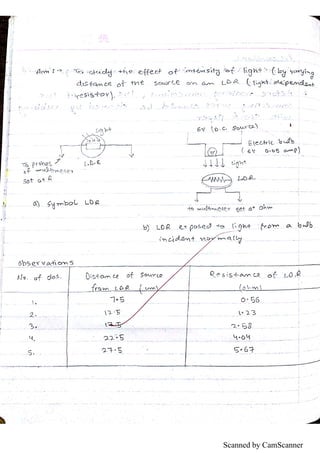 Aim :- To study the effect of intensity of light (by varying
distance of the source on an LDR (light dependent
resistor).
light
6V (D.C. source)
Electric bulb
(6V 0.05 amp)
light
To probes
of multimeter
Set at R
L.D.R
LDR
to multimeter set at ohm
a) Symbol LDR
b) LDR exposed to light from a bulb
incident normally
Observations
No. of obs. Distance of source from LDR (cm) Resistance of LDR (ohm)
1. 7.5 0.56
2. 12.5 1.23
3. 17.5 2.58
4. 22.5 4.04
5. 27.5 5.67
Scanned by CamScanner